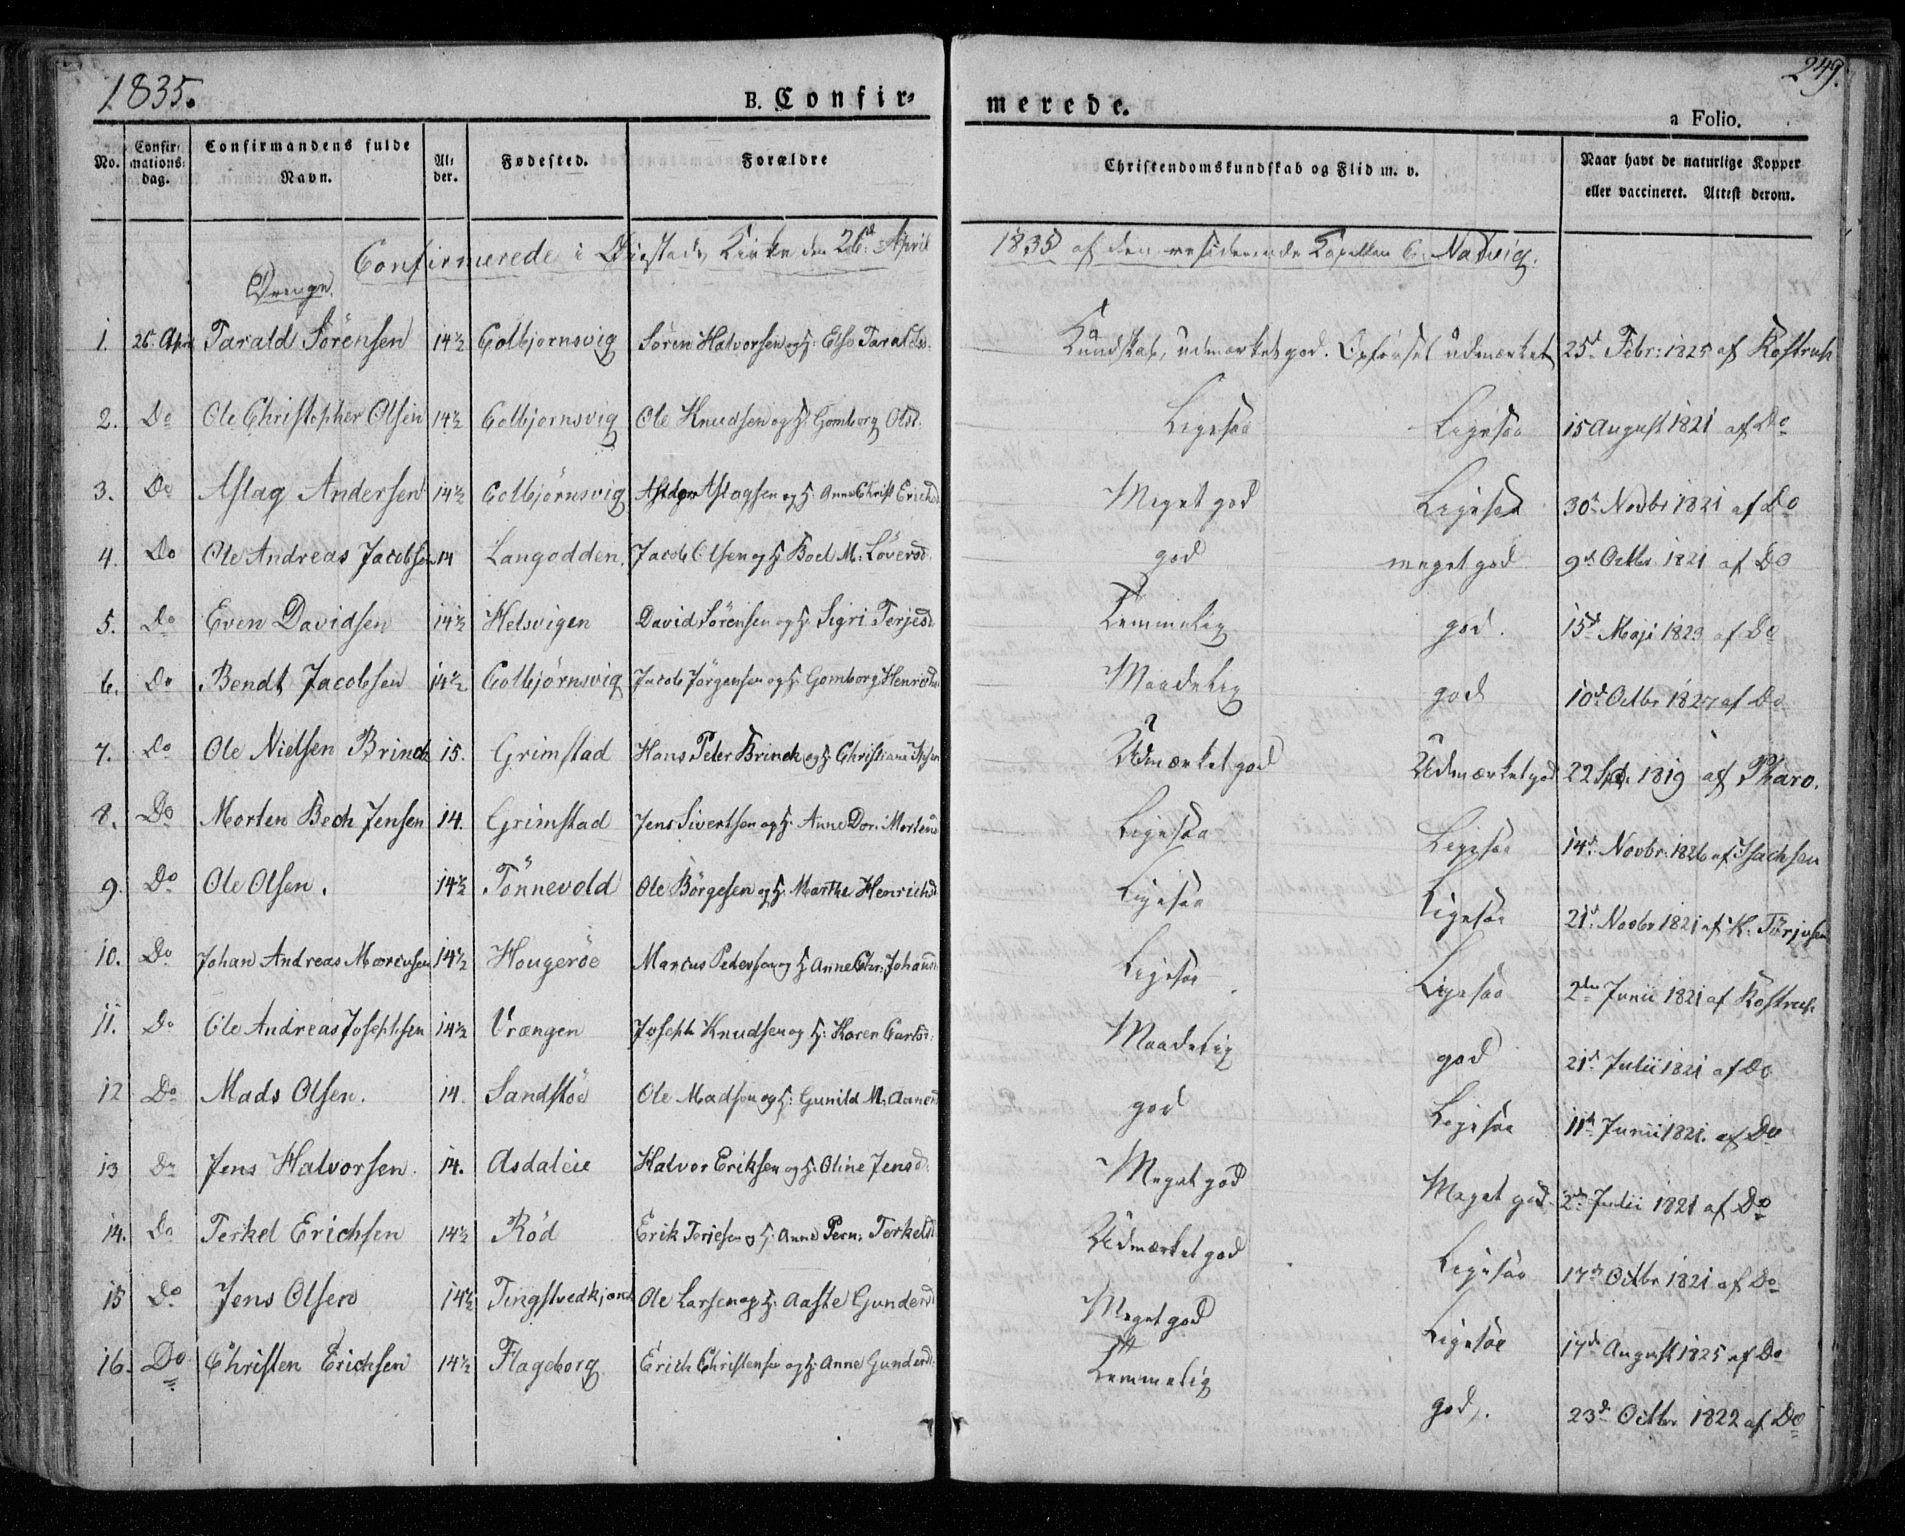 1835.
249.
B. Confir-
merede.
a Folio.
No.
Confirmations-dag.
Confirmandens fulde Navn.
Alder.
Fødested.
Forældre
Christendomskundskab og Flid m. v.
Naar havt de naturlige Kopper eller vaccineret. Attest derom.
Confirmerede i Øiestads Kirke den 26d April 1835 af den residerende Capellan C. Natvig.
Drenge.
1. 26. April Tarald Sörensen 14½ Colbjornsvig Sören Halvorsen og H: Else Taraldsd. Kundskab, udmærket god. Opförsel udmærket 25d Febr: 1825 af Kostrup
2. Do Ole Christopher Olsen 14½ Colbjornsvig Ole Knudsen og H: Gomborg Olsd. Ligesaa Ligesaa 15 August 1821 af Do
3. Do Aslag Andersen 14½ Colbjörnsvig Aslagsen og H: Anne Christ Erichsd Meget god Ligesaa 30d Novbr 1821 af Do
4. Do Ole Andreas Jacobsen 14 Langodden. Jacob Olsen og H: Boel M. Löversd. god meget god 9d Octbr. 1821 af Do
5. Do Even Davidsen 14½ Helsvigen David Sörensen og H: Sigri Terjesd Temmelig god. 15d Maji 1823 af Do
6. Do Bendt Jacobsen 14½ Colbjörnsvig Jacob Jörgensen og H: Gomborg Henrichsd Maadelig god 10d Octbr 1827 af Do
7. Do Ole Nielsen Brinck 15. Grimstad Hans Peter Brinck og H: Christiane Udmærket god Udmærket god 22 Sept. 1819 af Pharo.
8. Do Morten Bech Jensen 14. Grimstad Jens Sivertsen og H: Anne Dor: Mortensd Ligesaa Ligesaa 14d Novbr. 1826 af Isachsen
9. Do Ole Olsen. 14½ Tönnevold Ole Börgesen og H: Marthe Henrichsd Ligesaa Ligesaa 21d Novbr 1821 af K. Törjusen
10. Do Johan Andreas Marcusen 14½ Hougeröe Marcus Pedersen og H: Anne Chr: Johannsd Ligesaa Ligesaa 2den Junii 1821 af Kostrup.
11. Do Ole Andreas Josephsen 14½ Vrængen Joseph Knudsen og H: Karen Carlsd. Maadelig god 21d Julii 1821 af Do
12 Do Mads Olsen. 14. Sandstöe Ole Madsen og H: Gunild M. Aanensd god Ligesaa 11te Junii 1821. af Do
13 Do Jens Halvorsen. 14. Asdaleie Halvor Eriksen og H: Oline Jensd. Meget god Meget god 2den Julii 1821 af Do
14. Do Terkel Erichsen 14½ Röd Erik Terjesen og H: Anne Pern: Terkelsd Udmærket god Ligesaa 17de Octbr 1821 af Do
15 Do Jens Olsen 14½ Tingstvedkjend Ole Larsen og H: Aaste Gundersd Meget god Ligesaa 17de August 1825 af Do
16. Do Christen Erichsen 14½ Flageborg Erich Christensen og H: Anne Gundersd. Temmelig god. 23d Octbr 1822 af Do